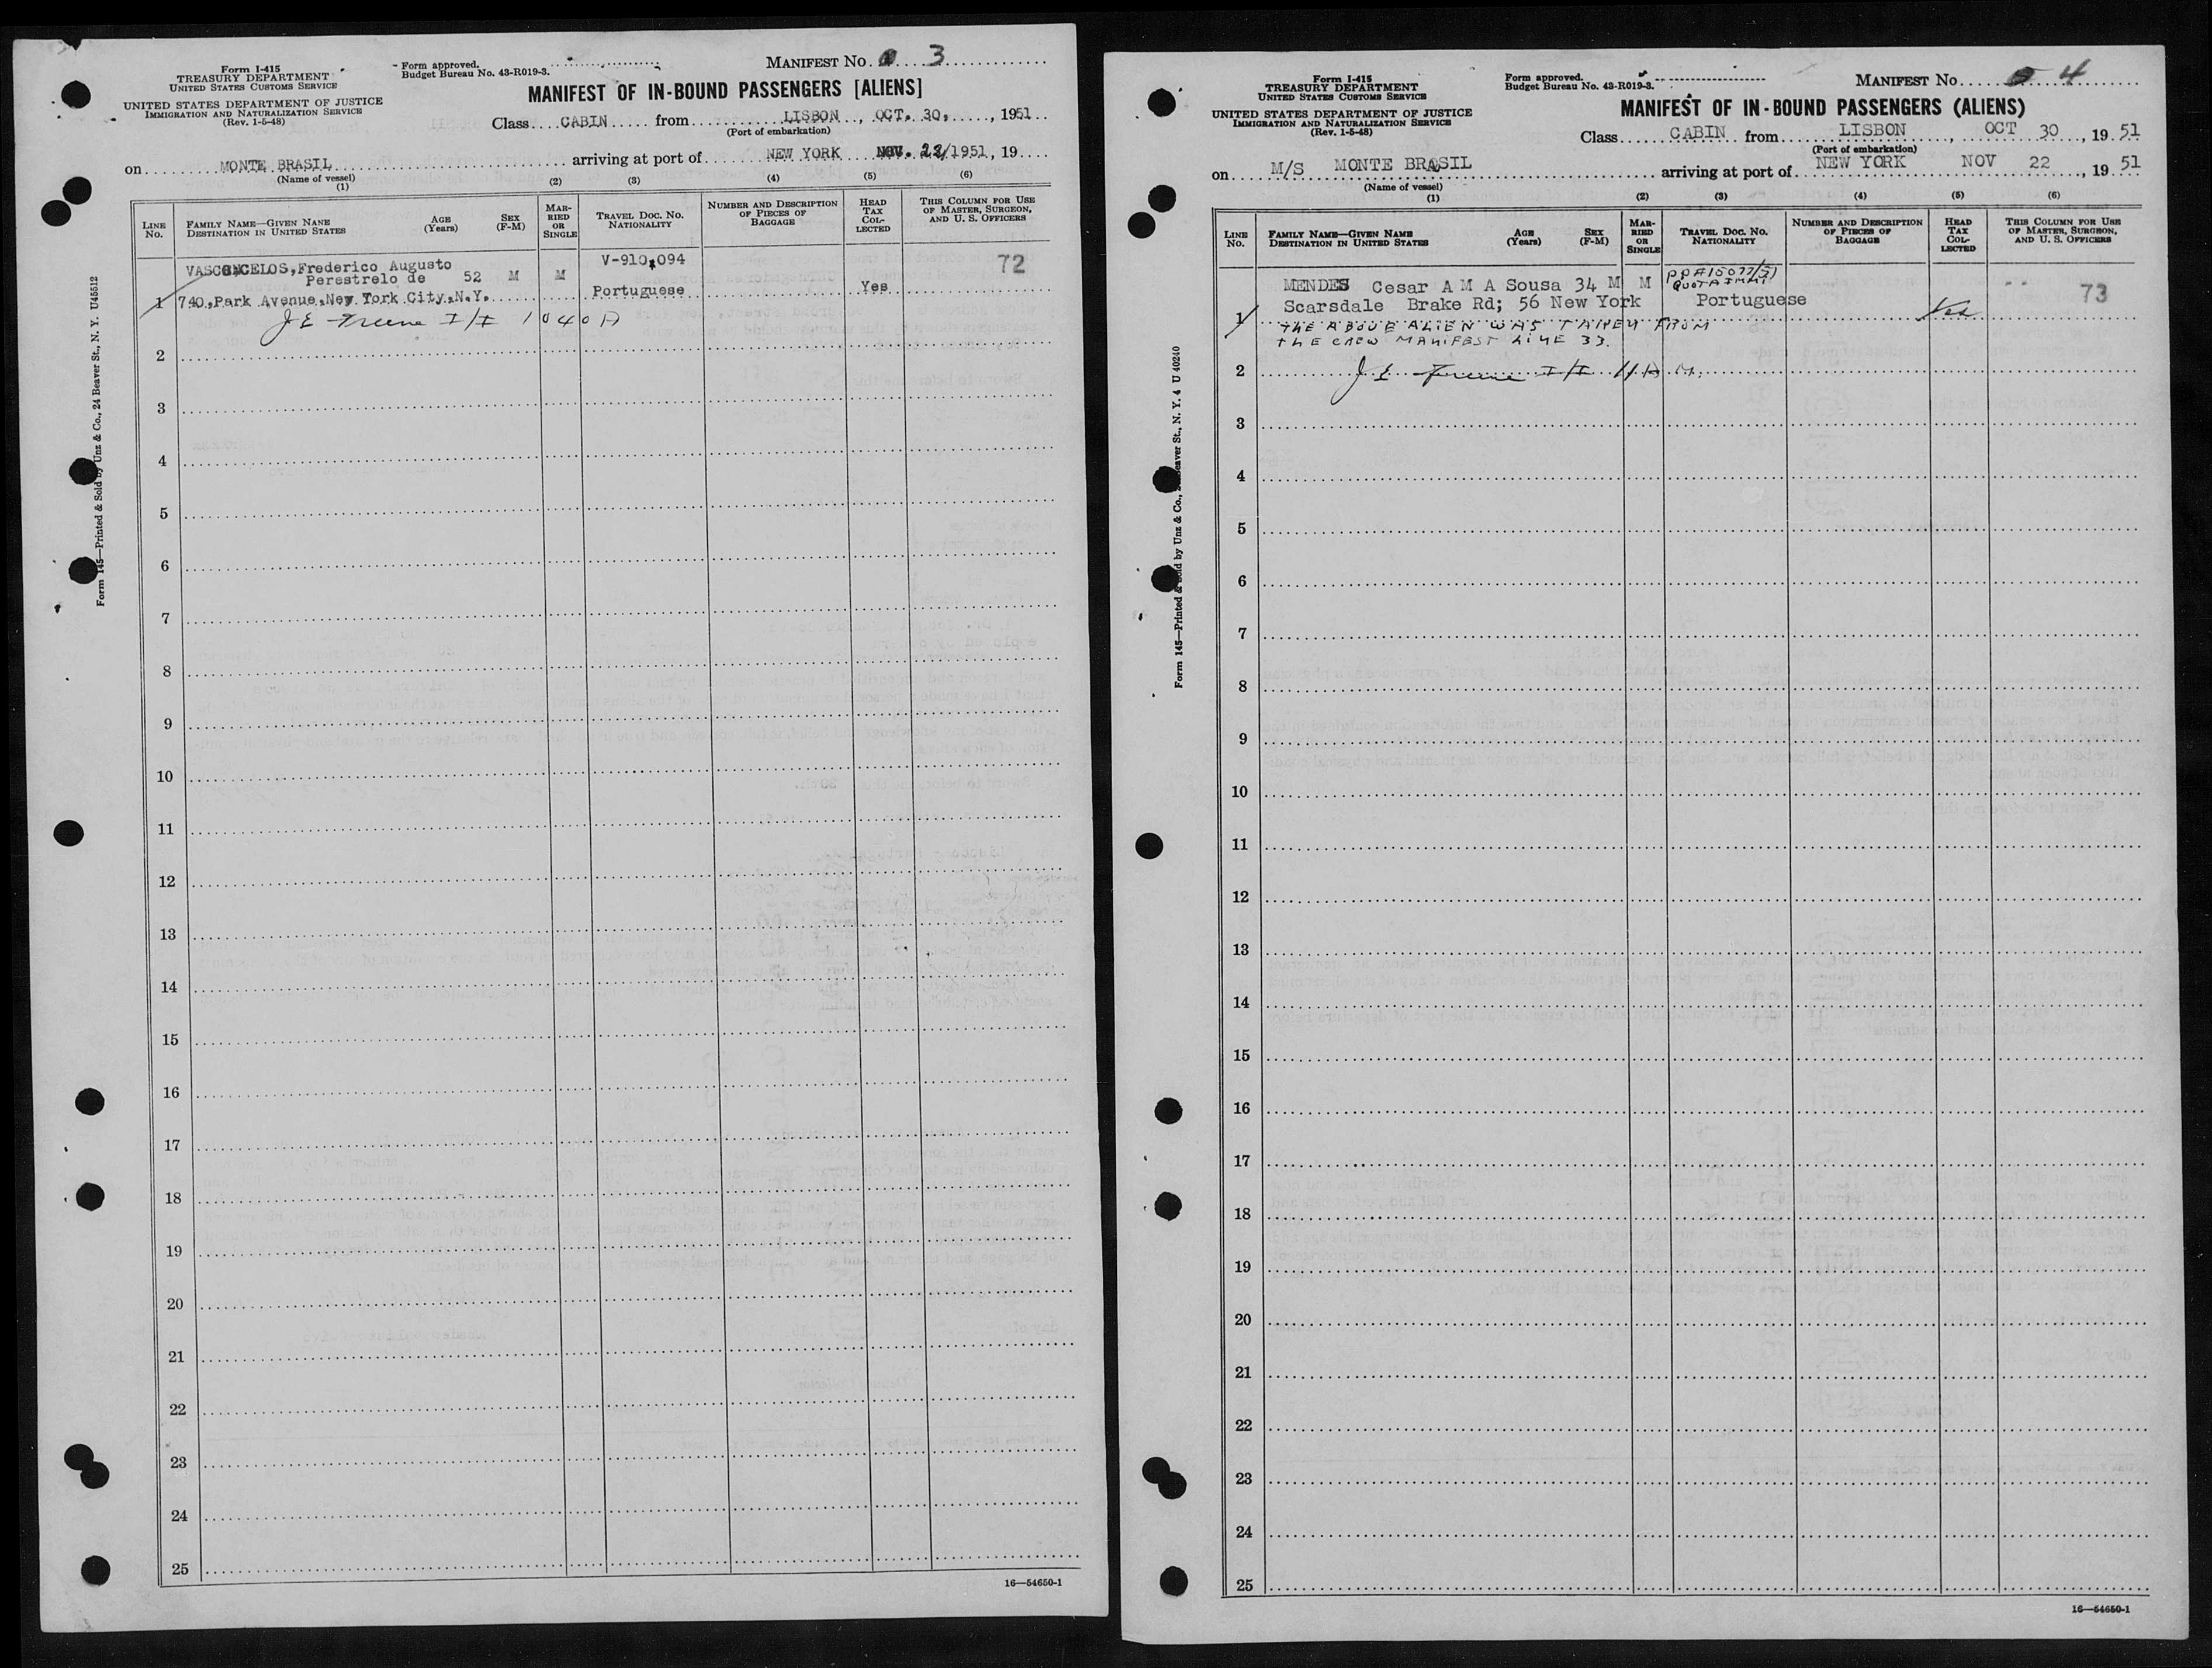 Form I-415
TREASURY DEPARTMENT
UNITED STATES CUSTOMS SERVICE
UNITED STATES DEPARTMENT OF JUSTICE
IMMIGRATION AND NATURALIZATION SERVICE
(Rev. 1-5-48)
Form approved.
Budget Bureau No. 43-R019-3.
MANIFEST No. 3
MANIFEST OF IN-BOUND PASSENGERS [ALIENS]
Class CABIN from LISBON, OCT. 30, 1951
(Port of embarkation)
on MONTE BRASIL arriving at port of NEW YORK NOV. 22/1951, 19
(Name of vessel)
(1) (2) (3) (4) (5) (6)
LINE No. FAMILY NAME—GIVEN NANE DESTINATION IN UNITED STATES AGE (Years) SEX (F-M) MARRIED OR SINGLE TRAVEL DOC. NO. NATIONALITY NUMBER AND DESCRIPTION OF PIECES OF BAGGAGE HEAD TAX COLLECTED THIS COLUMN FOR USE OF MASTER, SURGEON, AND U. S. OFFICERS
VASCONCELOS, Frederico Augusto V-910,094 72
Perestrelo de 52 M M
1 740, Park Avenue, New York City, N.Y. Portuguese Yes
J E Greene I/I 1040A
2
3
4
5
6
7
8
9
10
11
12
13
14
15
16
17
18
19
20
21
22
23
24
25
16—54650-1
Form 145—Printed & Sold by Unz & Co., 24 Beaver St., N. Y. U45512
Form I-415
TREASURY DEPARTMENT
UNITED STATES CUSTOMS SERVICE
UNITED STATES DEPARTMENT OF JUSTICE
IMMIGRATION AND NATURALIZATION SERVICE
(Rev. 1-5-48)
Form approved.
Budget Bureau No. 43-R019-3.
MANIFEST No. 4
MANIFEST OF IN-BOUND PASSENGERS (ALIENS)
Class CABIN from LISBON, OCT 30, 19 51
(Port of embarkation)
on M/S MONTE BRASIL arriving at port of NEW YORK NOV 22, 19 51
(Name of vessel)
(1) (2) (3) (4) (5) (6)
LINE No. FAMILY NAME—GIVEN NAME DESTINATION IN UNITED STATES AGE (Years) SEX (F-M) MARRIED OR SINGLE TRAVEL DOC. NO. NATIONALITY NUMBER AND DESCRIPTION OF PIECES OF BAGGAGE HEAD TAX COLLECTED THIS COLUMN FOR USE OF MASTER, SURGEON, AND U. S. OFFICERS
PP#15077/51
QUOTA IMMT
MENDES Cesar A M A Sousa 34 M M 73
Scarsdale Brake Rd; 56 New York Portuguese
1 Yes
THE ABOVE ALIEN WAS TAKEN FROM
THE CREW MANIFEST LINE 33.
2 J E Greene I/I 11 A M.
3
4
5
6
7
8
9
10
11
12
13
14
15
16
17
18
19
20
21
22
23
24
25
16—54650-1
Form 145—Printed & Sold by Unz & Co., Beaver St., N. Y. 4 U 40240